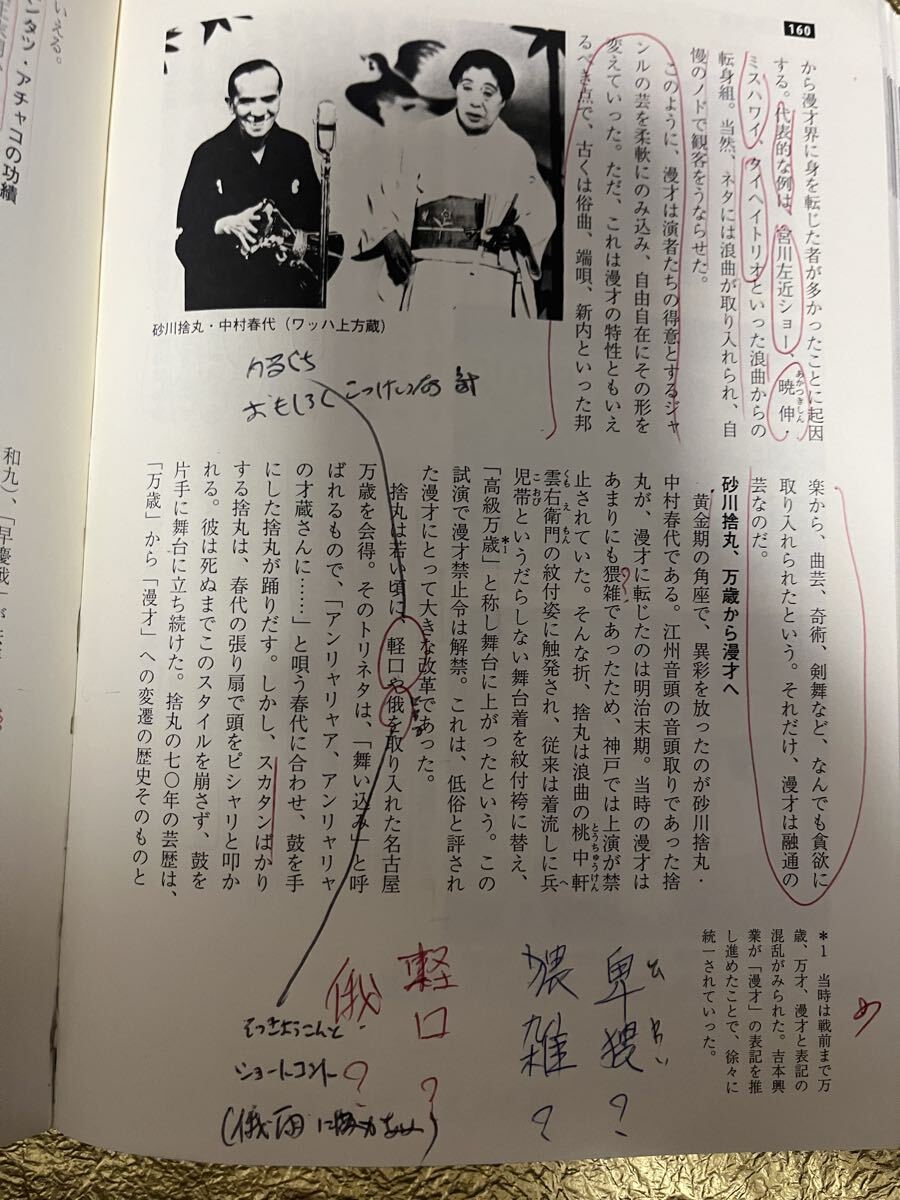 160
から漫才界に身を転じた者が多かったことに起因
する。代表的な例は、宮川左近ショー、暁伸・
あかつきしん
ミスハワイ、タイヘイトリオといった浪曲からの
転身組。当然、ネタには浪曲が取り入れられ、自
慢のノドで観客をうならせた。
このように、漫才は演者たちの得意とするジャ
ンルの芸を柔軟にのみ込み、自由自在にその形を
変えていった。ただ、これは漫才の特性ともいえ
るべき点で、古くは俗曲、端唄、新内といった邦
砂川捨丸・中村春代（ワッハ上方蔵）
かるくち
おもしろく こっけいな
楽から、曲芸、奇術、剣舞など、なんでも貪欲に
取り入れられたという。それだけ、漫才は融通の
芸なのだ。
砂川捨丸、万歳から漫才へ
黄金期の角座で、異彩を放ったのが砂川捨丸・
中村春代である。江州音頭の音頭取りであった捨
丸が、漫才に転じたのは明治末期。当時の漫才は
あまりにも猥雑であったため、神戸では上演が禁
止されていた。そんな折、捨丸は浪曲の桃中軒
とうちゅうけん
雲右衛門の紋付姿に触発され、従来は着流しに兵
くもえもん
へ
児帯というだらしない舞台着を紋付袴に替え、
こおび
「高級万歳」と称し舞台に上がったという。この
*1
試演で漫才禁止令は解禁。これは、低俗と評され
た漫才にとって大きな改革であった。
捨丸は若い頃に、軽口や俄を取り入れた名古屋
万歳を会得。そのトリネタは、「舞い込み」と呼
ばれるもので、「アンリャリャア、アンリャリャ
の才蔵さんに……」と唄う春代に合わせ、鼓を手
にした捨丸が踊りだす。しかし、スカタンばかり
する捨丸は、春代の張り扇で頭をピシャリと叩か
れる。彼は死ぬまでこのスタイルを崩さず、鼓を
片手に舞台に立ち続けた。捨丸の七〇年の芸歴は、
「万歳」から「漫才」への変遷の歴史そのものと
*1 当時は戦前まで万
歳、万才、漫才と表記の
混乱がみられた。吉本興
業が「漫才」の表記を推
し進めたことで、徐々に
統一されていった。
め
卑猥?
ひわい
猥雑?
軽口?
俄?
そっきょうこんと
ショートコント
いえる。
ンタツ・アチャコの功績
和九）、「早慶戦」が